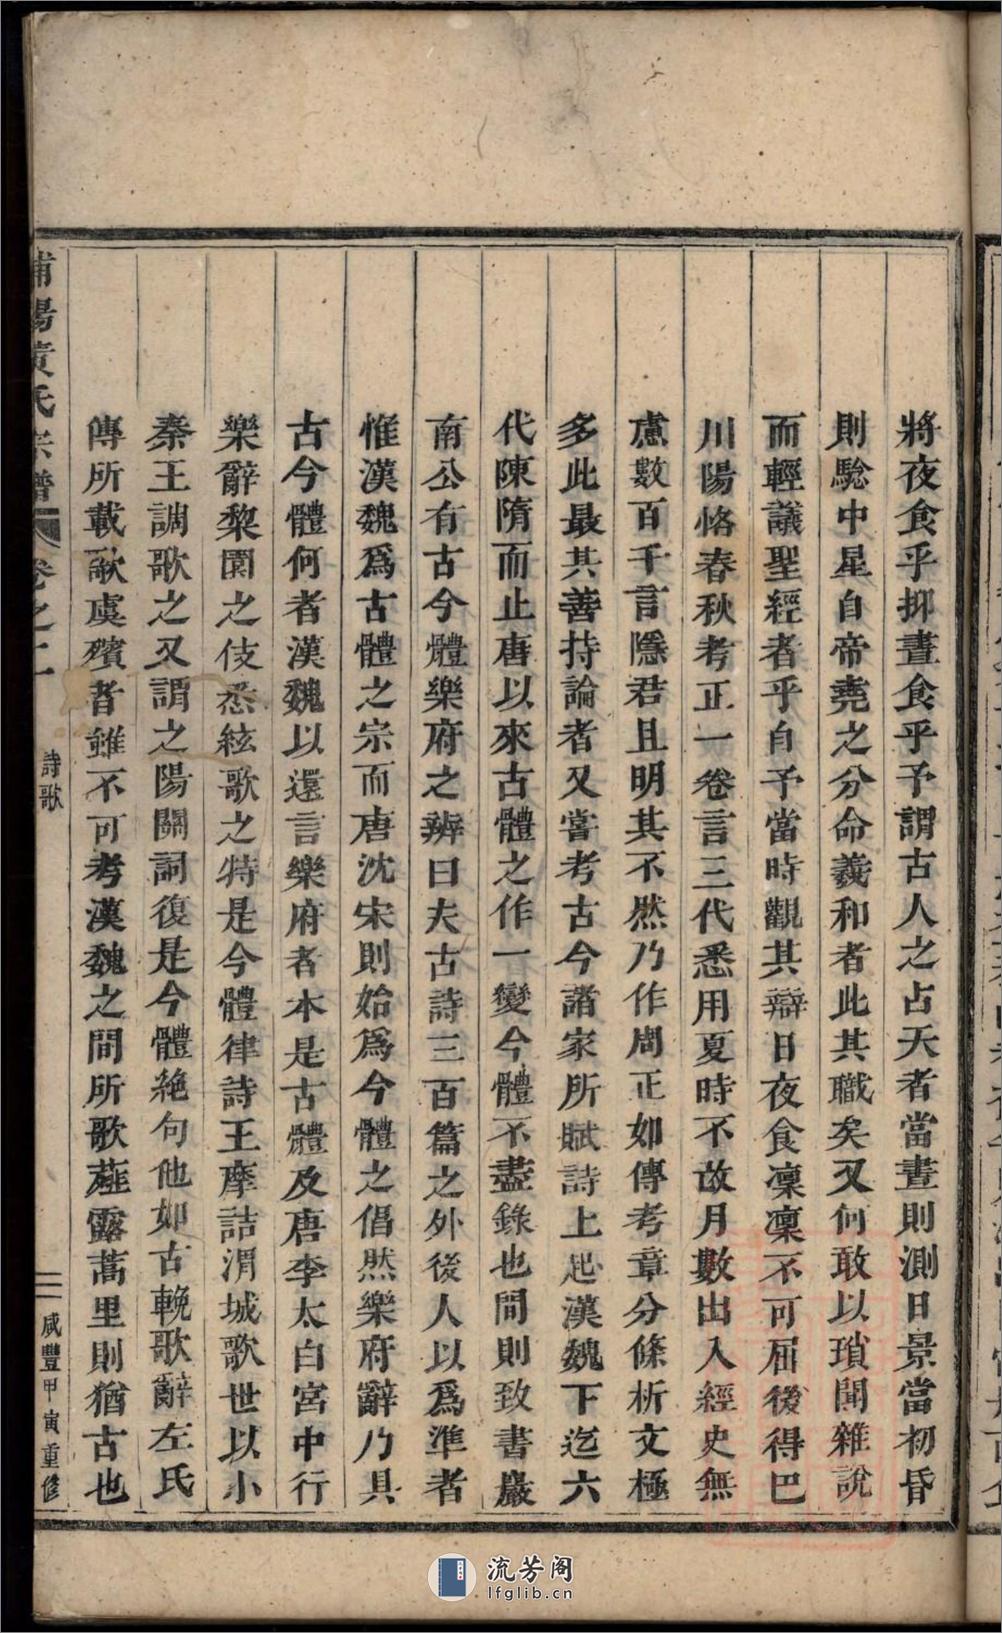 將夜食乎抑晝食乎予謂古人之占天者當晝則測日景當初昏
則驗中星自帝堯之分命羲和者此其職矣又何敢以瑣聞雜說
而輕議聖經者乎自予當時觀其辯日夜食凜凜不可屈後得巴
川陽恪春秋考正一卷言三代悉用夏時不改月數出入經史無
慮數百千言隱君且明其不然乃作周正如傳考章分條析文極
多此最其善持論者又嘗考古今諸家所賦詩上起漢魏下迄六
代陳隋而止唐以來古體之作一變今體不盡錄也間則致書嚴
南公有古今體樂府之辨曰夫古詩三百篇之外後人以爲準者
惟漢魏爲古體之宗而唐沈宋則始爲今體之倡然樂府辭乃具
古今體何者漢魏以還言樂府者本是古體及唐李太白宮中行
樂辭棃園之伎悉絃歌之特是今體律詩王摩詰渭城歌世以小
秦王調歌之又謂之陽關詞復是今體絶句他如古輓歌辭左氏
傳所載歌虞殯者雖不可考漢魏之間所歌薤露蒿里則猶古也
浦陽黃氏宗譜 卷之二 詩歌 二 咸豐甲寅重修
流芳阁
lfglib.cn